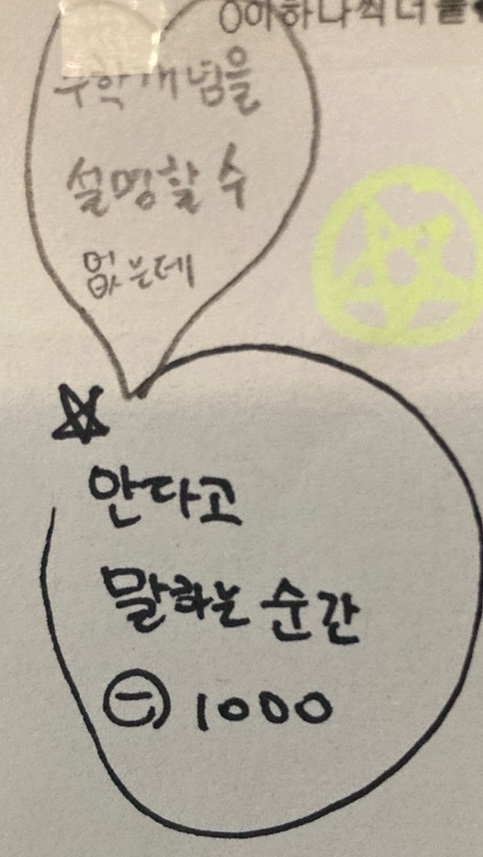 하나씩 더
수학개념을
설명할 수
없는데
안다고
말하는 순간
⊖ 1000